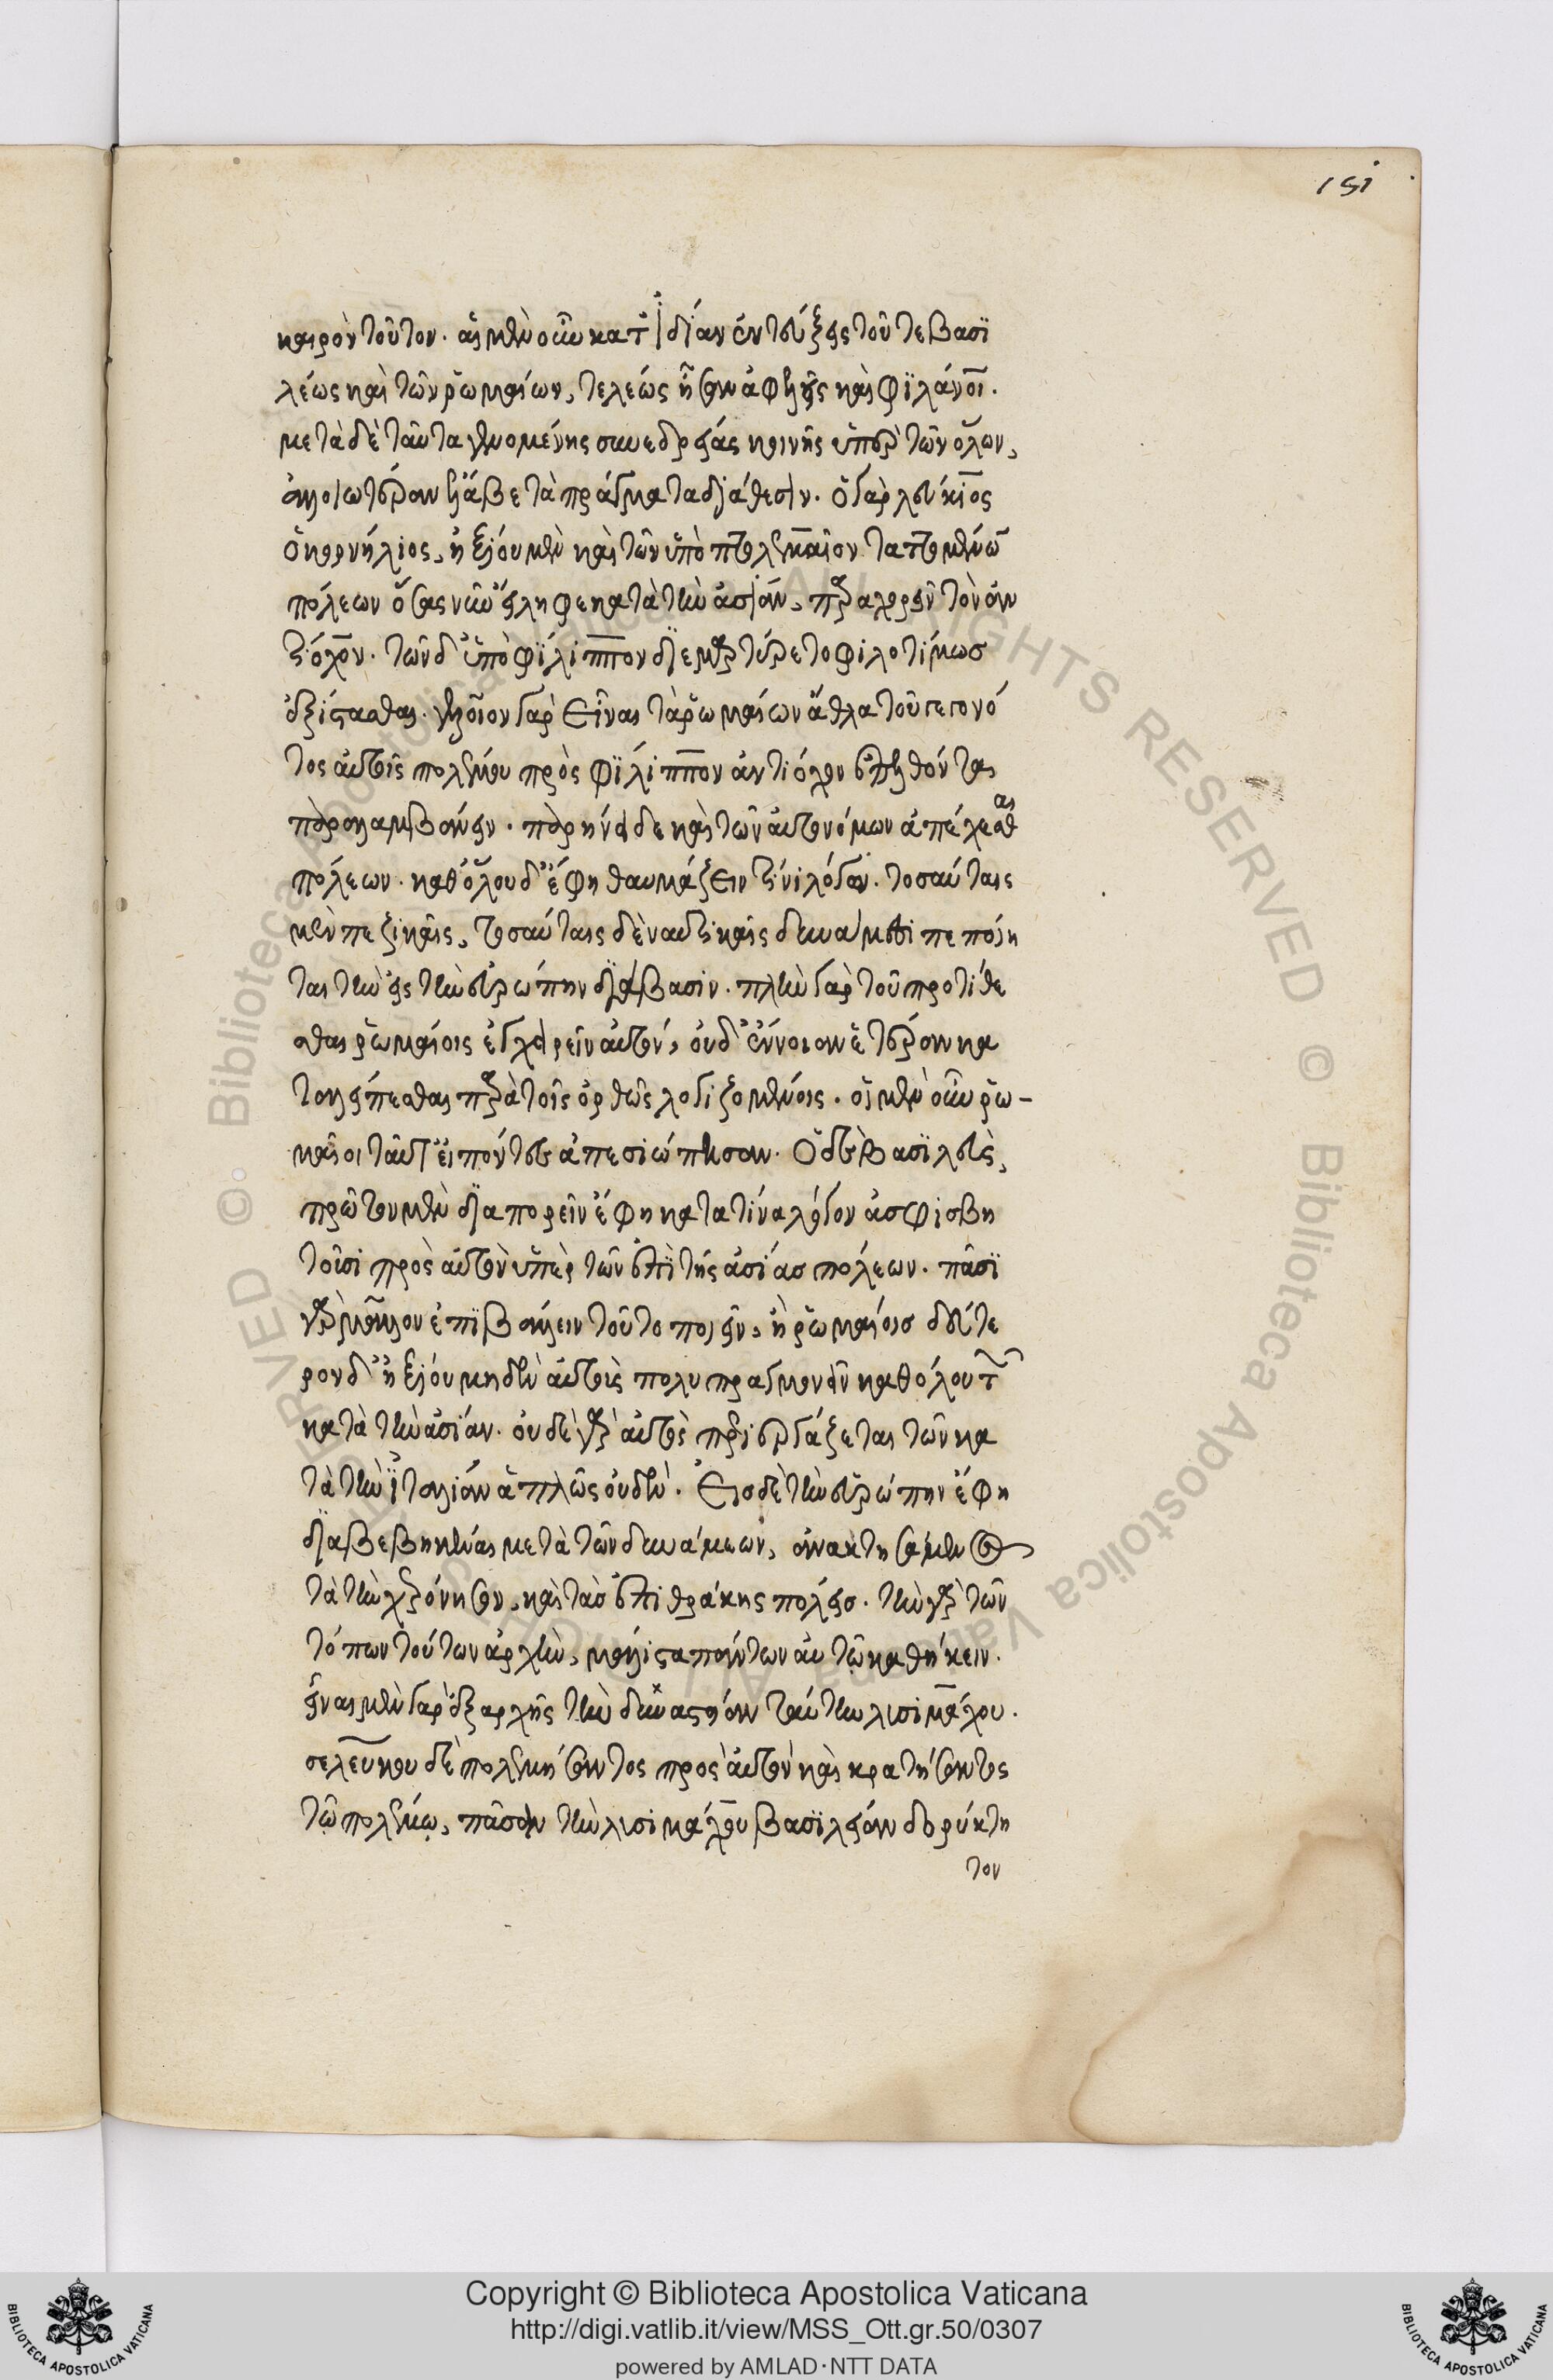 καιρὸν τοῦτον. αἱ μὲν οὖν κατ' ἰδίαν ἐντεύξεις τοῦ τε βασϊ
λέως καὶ τῶν ῥωμαίων, τελέως ἦσαν ἀφελεῖς καὶ φϊλάνοι.
μετὰ δὲ ταῦτα γινομένης συνεδρείας κοινῆς ὑπὲρ τῶν ὅλων,
ἀλλοιωτέραν ἔλαβε τὰ πράγματα διάθεσιν. ὁ γὰρ λεύκιος
ὁ κορνήλιος, ἠξίου μὲν καὶ τῶν ὑπὸ πτολεμαῖον ταττομένων
πόλεων ὅσας νῦν εἴληφε κατὰ τὴν ἀσίαν, παραχωρεῖν τὸν ἀν
τίοχον. τῶν δ' ὑπὸ φϊλίππον διεμαρτύρετο φιλοτίμωσ
ἐξίστασθαι. γελοῖον γὰρ εἶναι τὰ ῥωμαίων ἄθλα τοῦ γεγονό
τος αὐτοῖς πολέμου πρὸς φϊλίππον ἀντιόχου ἐπελθόντα
παραλαμβάνειν. παρήνει δὲ καὶ τῶν αὐτονόμων ἀπέχεσθαι
πόλεων. καθόλου δ' ἔφη θαυμάζειν τίνι λόγω. τοσαύταις
μὲν πεζικαῖς, τοσαύταις δὲ ναυτικαῖς δυνάμεσι πεποίη
ται τὴν εἰς τὴν εὐρώπην διάβασιν. πλὴν γὰρ τοῦ προτίθε
σθαι ῥωμαίοις ἐγχειρεῖν αὐτόν, οὐδ' ἔννοιαν ἑτέραν κα
ταλείπεσθαι παρὰ τοῖς ὀρθῶς λογιζομένοις. οἱ μὲν οὖν ῥω-
μαῖοι ταῦτ' εἰπόντες ἀπεσιώπησαν. ὁ δὲ βασϊλεὺς,
πρῶτον μὲν διαπορεῖν ἔφη κατα τίνα λόγον ἀσφισβη
τοῦσι πρὸς αὐτὸν ὑπὲρ τῶν ἐπῒ τῆς ἀσίας πόλεων. πᾶσϊ
γὰρ μᾶλλον ἐπϊβάλλειν τοῦτο ποιεῖν, ἢ ῥωμαίοισ δεύτε
ρον δ' ἠξίου μηδὲν αὐτοὺς πολυπραγμονεῖν καθόλου τῶν
κατὰ τὴν ἀσίαν. οὐδὲ γὰρ αὐτὸς περιεργάζεται τῶν κα
τὰ τὴν ἰταλίαν ἁπλῶς οὐδέν. Εἰσ δὲ τὴν εὐρώπην ἔφη
διαβεβηκέναι μετὰ τῶν δυνάμεων, ἀνακτησόμενος
τὰ τὴν χερόνησον, καὶ τὰσ ἐπὶ θράκης πόλεισ. τὴν γὰρ τῶν
τόπων τούτων ἀρχὴν, μάλιστα πάντων αὐτῷ καθήκειν.
εἶναι μὲν γὰρ ἐξαρχῆς τὴν δυναστείαν ταύτην λισιμάχου.
σελεύκου δὲ πολεμήσαντος πρὸς αὐτὸν καὶ κρατήσαντος
τῷ πολέμῳ, πᾶσαν τὴν λισιμάχου βασϊλείαν δορύκτη
τον
151